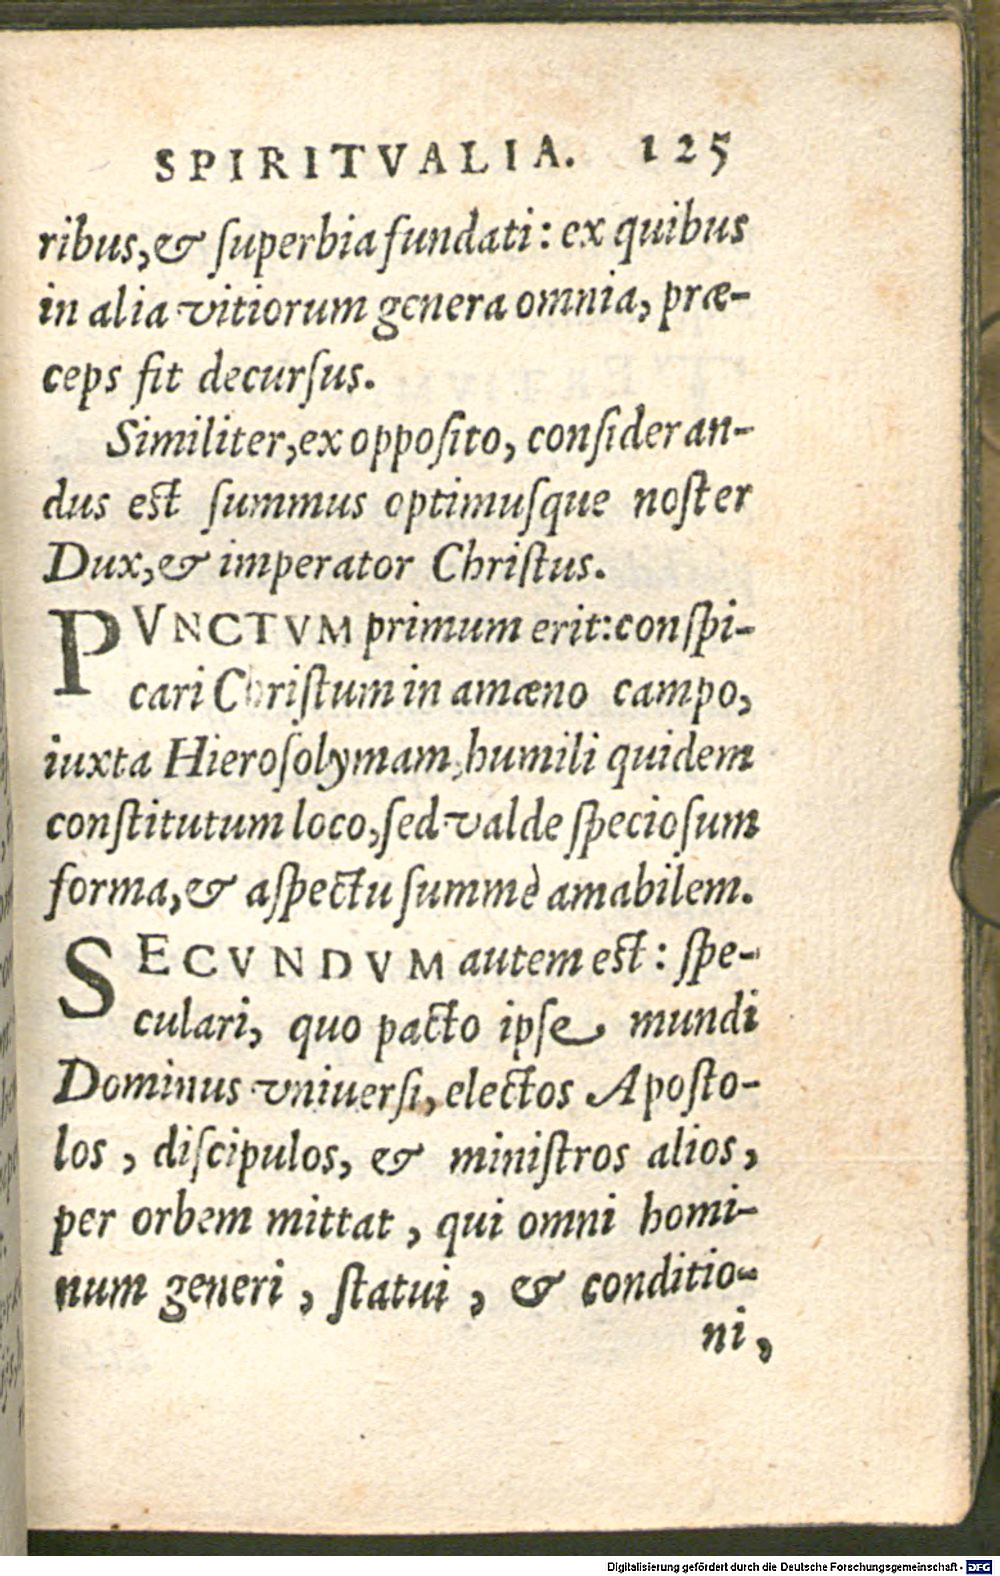 SPIRITVALIA. 125
ribus, & ſuperbia fundati: ex quibus
in alia vitiorum genera omnia, præ-
ceps fit decurſus.
Similiter, ex oppoſito, conſideran-
dus eſt ſummus optimuſque noſter
Dux, & imperator Chriſtus.
PVNCTVM primum erit: conſpi-
cari Chriſtum in amæno campo,
iuxta Hieroſolymam, humili quidem
conſtitutum loco, ſed valde ſpecioſum
forma, & aſpectu ſummè amabilem.
SECVNDVM autem eſt: ſpe-
culari, quo pacto ipſe mundi
Dominus vniuerſi, electos Apoſto-
los, diſcipulos, & miniſtros alios,
per orbem mittat, qui omni homi-
num generi, ſtatui, & conditio-
ni,
Digitalisierung gefördert durch die Deutsche Forschungsgemeinschaft - DFG